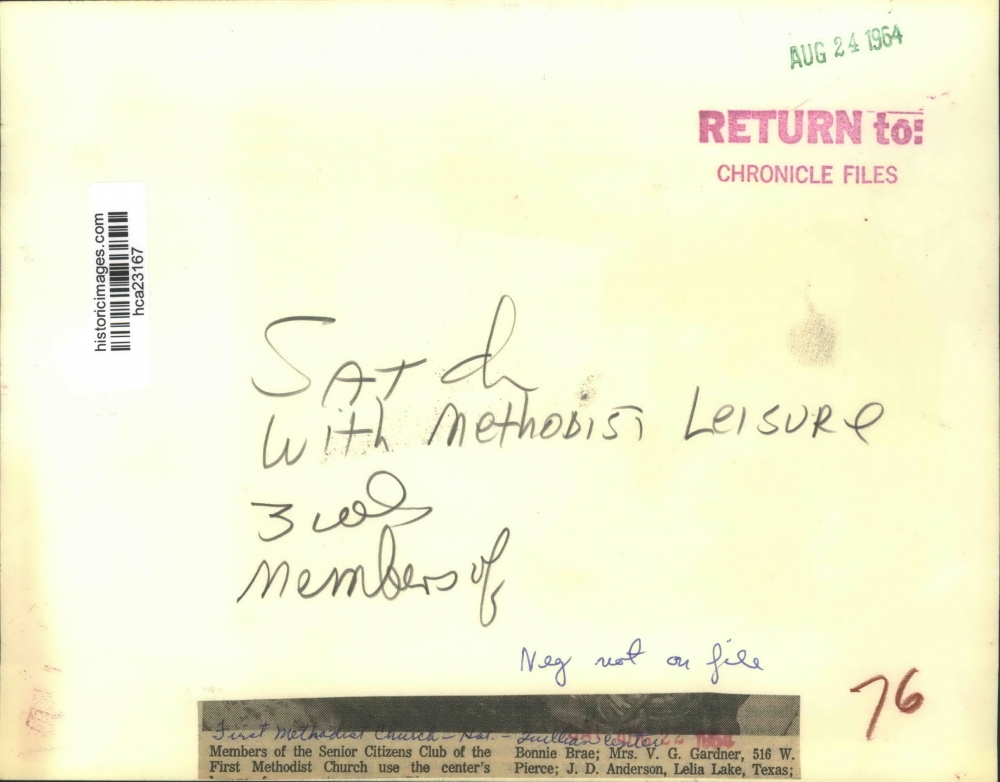 AUG 24 1964
RETURN to:
CHRONICLE FILES
historicimages.com
hca23167
SAT ch
With Methodist Leisure
3 cols
Members of
Neg not on file
76
First Methodist Church - Hou. - Quillian Center
Members of the Senior Citizens Club of the
First Methodist Church use the center's
Bonnie Brae; Mrs. V. G. Gardner, 516 W.
Pierce; J. D. Anderson, Lelia Lake, Texas;